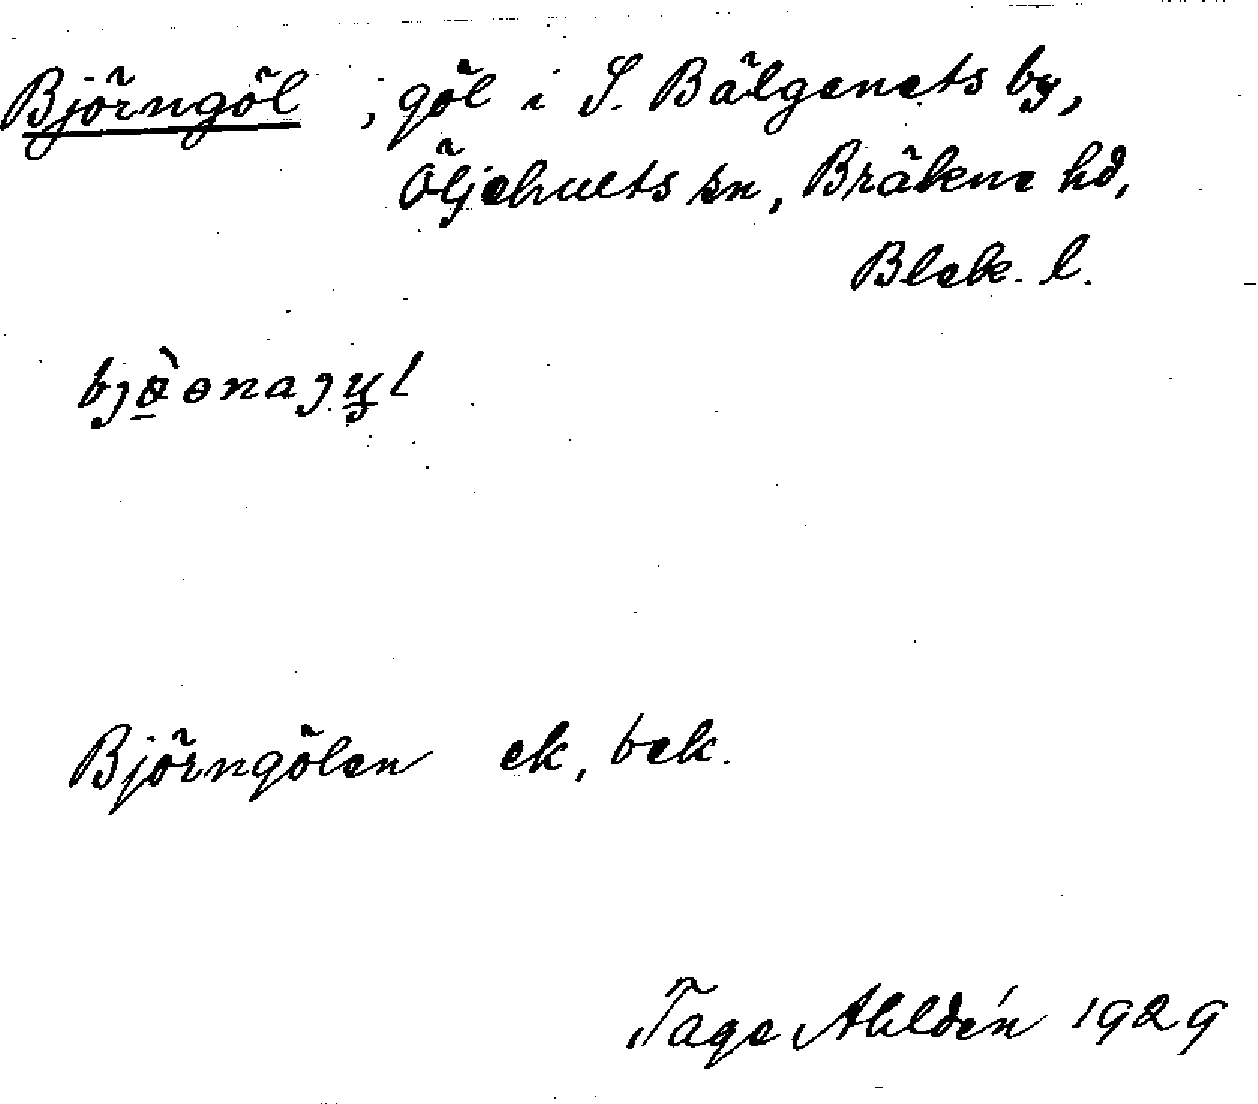 Björngöl, göl i S. Bälganets by,
Öljehults sn, Bräkne hd,
Blek. l.
Björngölen ek, bek.
Tage Ahldén 1929